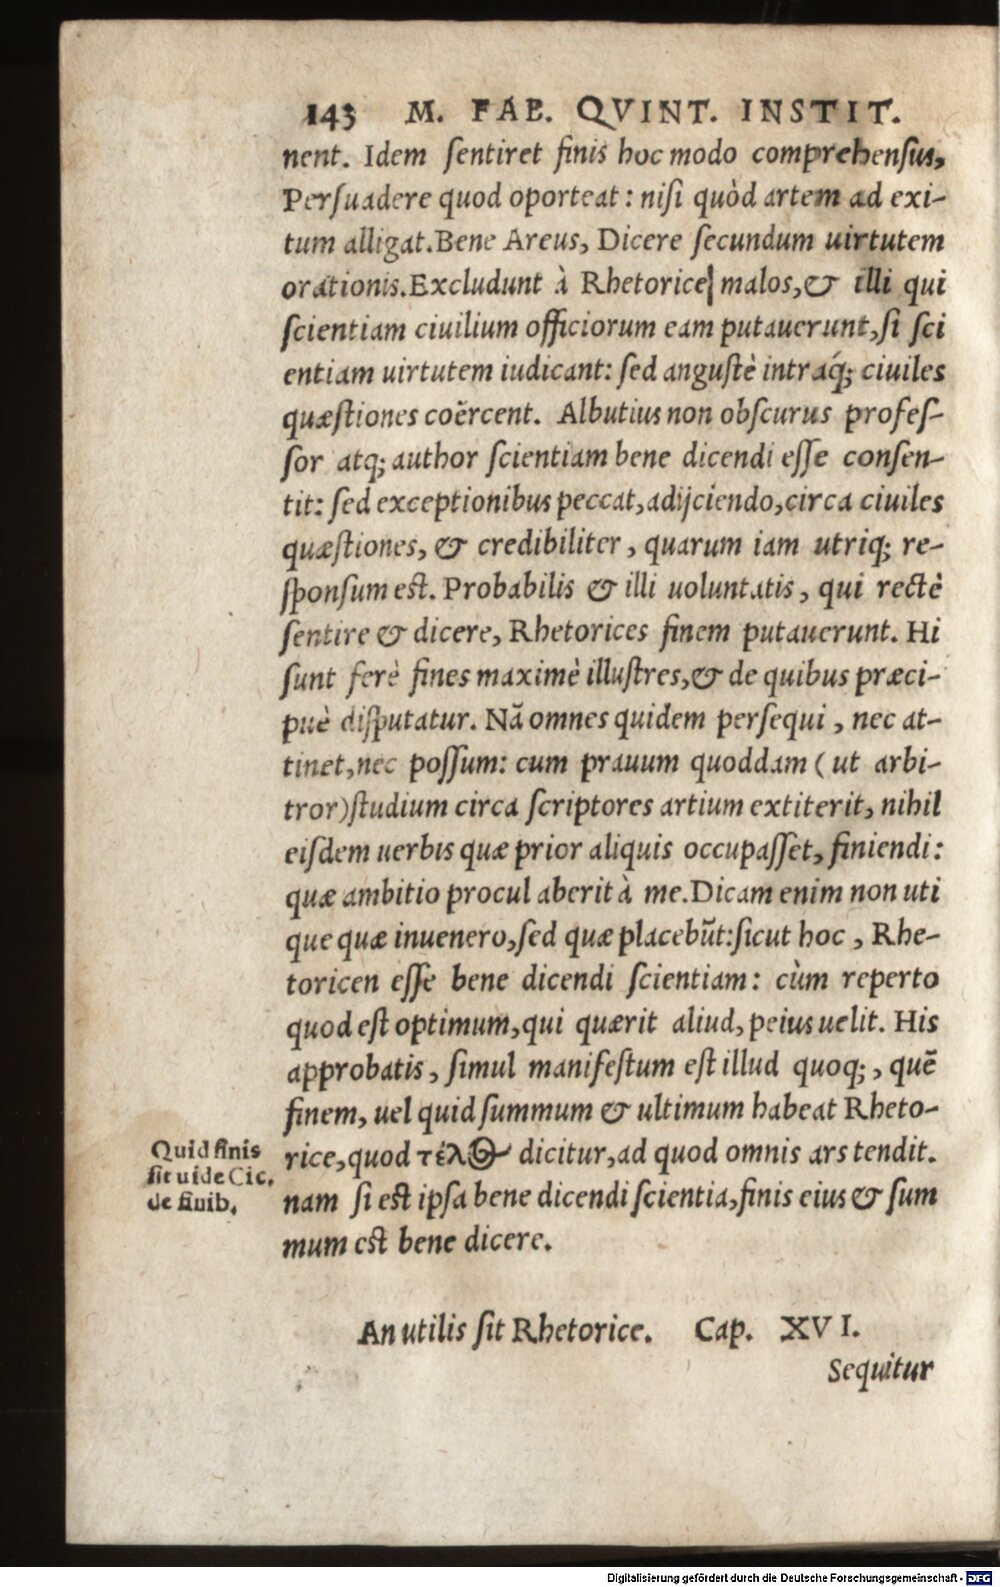 143 M. FAB. QVINT. INSTIT.
nent. Idem ſentiret finis hoc modo comprehenſus,
Perſuadere quod oporteat: niſi quòd artem ad exi-
tum alligat. Bene Areus, Dicere ſecundum uirtutem
orationis. Excludunt à Rhetorice malos, & illi qui
ſcientiam ciuilium officiorum eam putauerunt, ſi ſci
entiam uirtutem iudicant: ſed anguſtè intraq́; ciuiles
quæſtiones coërcent. Albutius non obſcurus profeſ-
ſor atq; author ſcientiam bene dicendi eſſe conſen-
tit: ſed exceptionibus peccat, adijciendo, circa ciuiles
quæſtiones, & credibiliter, quarum iam utriq; re-
ſponſum est. Probabilis & illi uoluntatis, qui rectè
ſentire & dicere, Rhetorices finem putauerunt. Hi
ſunt ferè fines maximè illuſtres, & de quibus præci-
puè diſputatur. Nā omnes quidem perſequi, nec at-
tinet, nec poſſum: cum prauum quoddam (ut arbi-
tror) ſtudium circa ſcriptores artium extiterit, nihil
eiſdem uerbis quæ prior aliquis occupaſſet, finiendi:
quæ ambitio procul aberit à me. Dicam enim non uti
que quæ inuenero, ſed quæ placebūt: ſicut hoc, Rhe-
toricen eſſe bene dicendi ſcientiam: cùm reperto
quod eſt optimum, qui quærit aliud, peius uelit. His
approbatis, ſimul manifeſtum eſt illud quoq;, quē
finem, uel quid ſummum & ultimum habeat Rheto-
rice, quod τέλος dicitur, ad quod omnis ars tendit.
nam ſi est ipſa bene dicendi ſcientia, finis eius & ſum
mum est bene dicere.
Quid finis
ſit uide Cic.
de finib.
An utilis ſit Rhetorice. Cap. XVI.
Sequitur
Digitalisierung gefördert durch die Deutsche Forschungsgemeinschaft - DFG